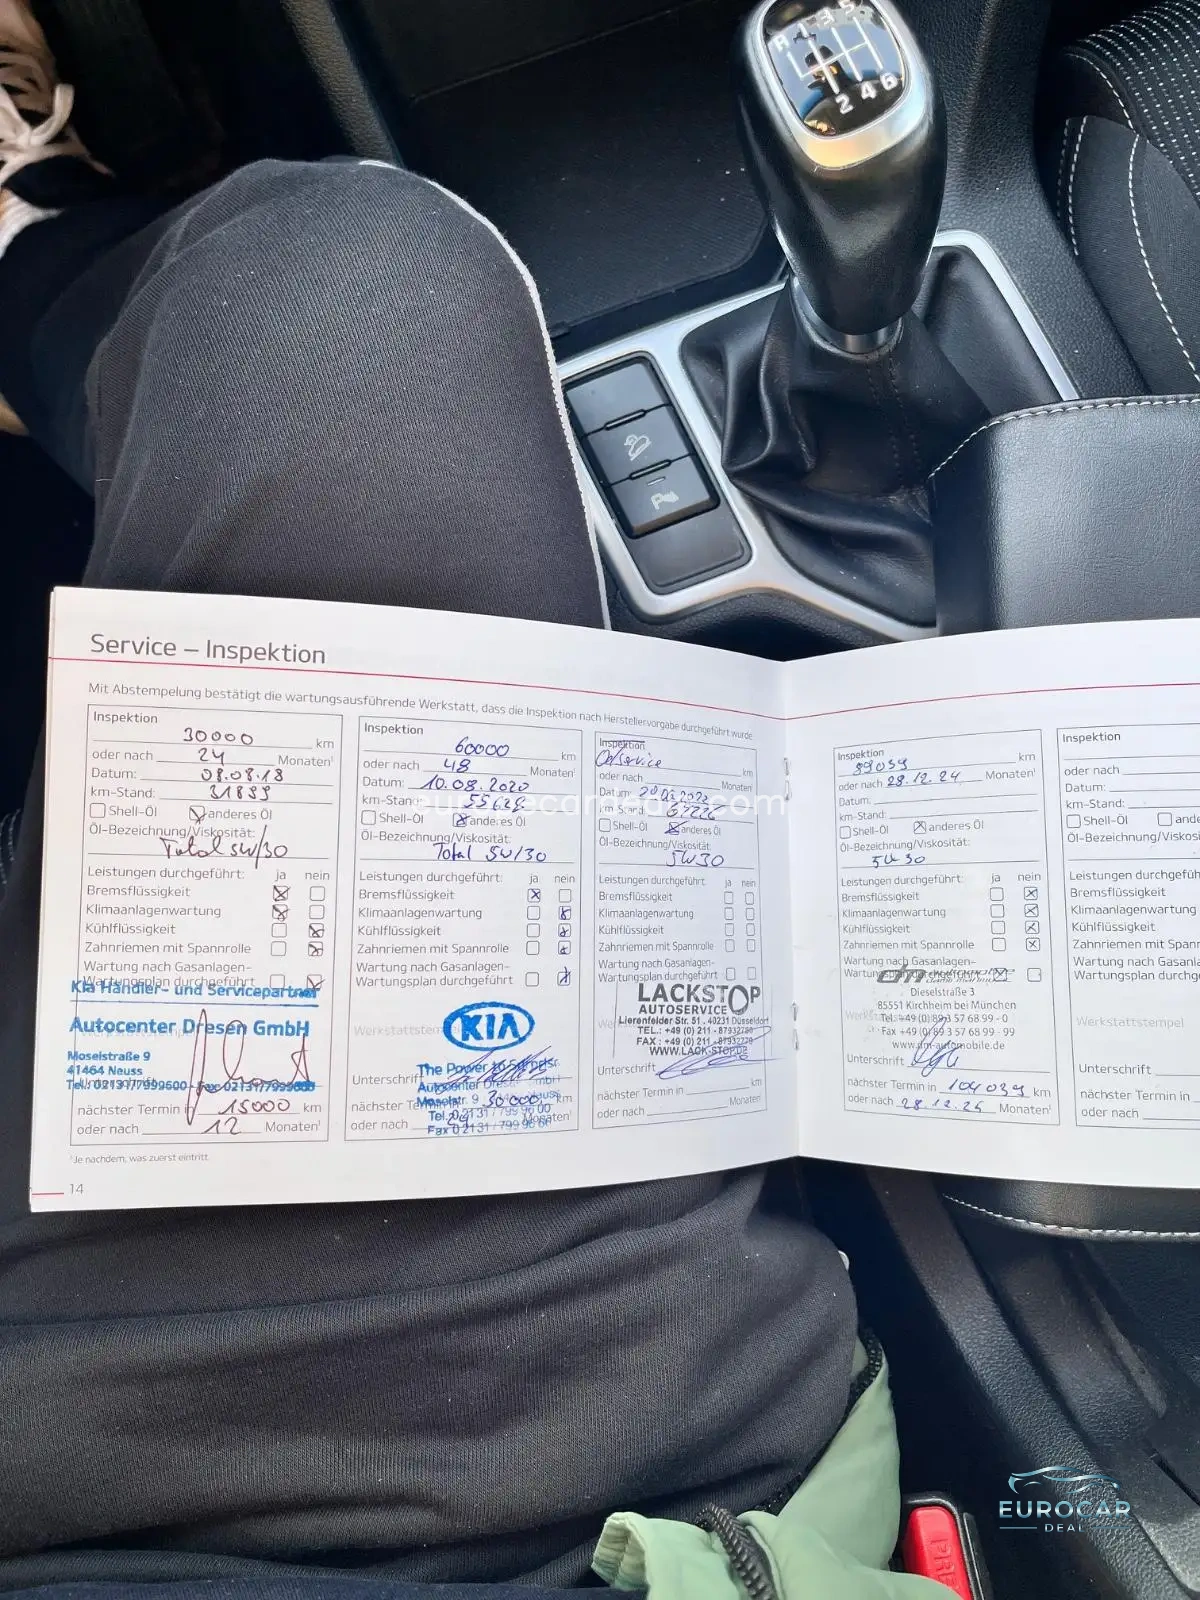 R 1 3 5
2 4 6
P
Service – Inspektion
Mit Abstempelung bestätigt die wartungsausführende Werkstatt, dass die Inspektion nach Herstellervorgabe durchgeführt wurde.
Inspektion
30000 km
oder nach 24 Monaten¹
Datum: 08.08.18
km-Stand: 31899
Shell-Öl anderes Öl
Öl-Bezeichnung/Viskosität:
Total 5W/30
Leistungen durchgeführt: ja nein
Bremsflüssigkeit
Klimaanlagenwartung
Kühlflüssigkeit
Zahnriemen mit Spannrolle
Wartung nach Gasanlagen-
Wartungsplan durchgeführt
Kia Händler- und Servicepartner
Autocenter Dresen GmbH
Moselstraße 9
41464 Neuss
Tel.: 02131/7999600 - Fax 02131/7999660
nächster Termin in 15000 km
oder nach 12 Monaten¹
¹Je nachdem, was zuerst eintritt
14
Inspektion
60000 km
oder nach 48 Monaten¹
Datum: 10.08.2020
km-Stand: 55629
Shell-Öl anderes Öl
Öl-Bezeichnung/Viskosität:
Total 5W/30
Leistungen durchgeführt: ja nein
Bremsflüssigkeit
Klimaanlagenwartung
Kühlflüssigkeit
Zahnriemen mit Spannrolle
Wartung nach Gasanlagen-
Wartungsplan durchgeführt
KIA
The Power to Surprise
Unterschrift
Autocenter Dresen GmbH
Moselstr. 9
nächster Termin in 30000 km
Tel. 0 21 31 / 799 96 00
oder nach Monaten¹
Fax 0 21 31 / 799 96 60
Inspektion
Oelservice km
oder nach Monaten¹
Datum:
km-Stand:
Shell-Öl anderes Öl
Öl-Bezeichnung/Viskosität:
5W30
Leistungen durchgeführt: ja nein
Bremsflüssigkeit
Klimaanlagenwartung
Kühlflüssigkeit
Zahnriemen mit Spannrolle
Wartung nach Gasanlagen-
Wartungsplan durchgeführt
LACKSTOP
AUTOSERVICE
Lierenfelder Str. 51 . 40231 Düsseldorf
TEL.: +49 (0) 211 - 87932780
FAX : +49 (0) 211 - 87932779
WWW.LACK-STOP.DE
Unterschrift
nächster Termin in km
oder nach Monaten¹
Inspektion
89039
oder nach 28.12.24 Monaten¹
Datum:
km-Stand:
Shell-Öl anderes Öl
Öl-Bezeichnung/Viskosität:
5W30
Leistungen durchgeführt: ja nein
Bremsflüssigkeit
Klimaanlagenwartung
Kühlflüssigkeit
Zahnriemen mit Spannrolle
Wartung nach Gasanlagen-
Wartungsplan durchgeführt
Dieselstraße 3
85551 Kirchheim bei München
Tel. +49 (0) 89 3 57 68 99 - 0
Fax +49 (0) 89 3 57 68 99 - 99
www.dm-automobile.de
Unterschrift
nächster Termin in 104039 km
oder nach 28.12.25 Monaten¹
Inspektion
oder nach
Datum:
km-Stand:
Shell-Öl
Öl-Bezeichnung/Viskosität:
Leistungen durchgeführt:
Bremsflüssigkeit
Klimaanlagenwartung
Kühlflüssigkeit
Zahnriemen mit
Wartung nach
Wartungsplan
Werkstattstempel
Unterschrift
nächster Termin
oder nach
EUROCAR
DEAL
PRE